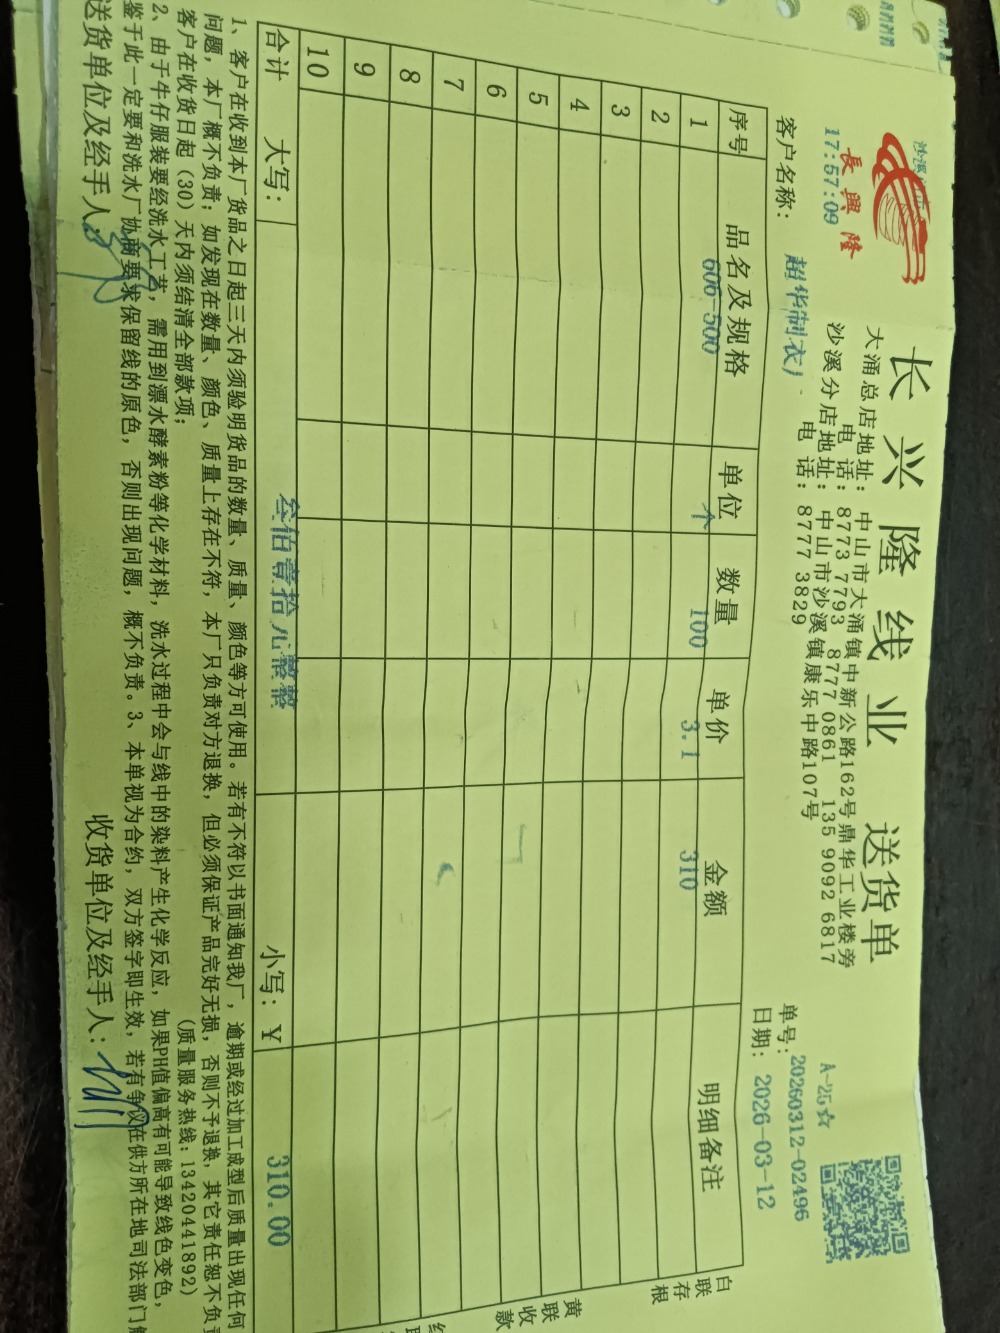 長興隆
17:57:09
长兴隆线业 送货单
大涌总店地址: 中山市大涌镇中新公路162号鼎华工业楼旁
电话: 8773 7793 8777 0861 135 9092 6817
沙溪分店地址: 中山市沙溪镇康乐中路107号
电话: 8777 3829
A-25☆
单号: 20260312-02496
客户名称: 超华制衣厂
日期: 2026-03-12
序号 品名及规格 单位 数量 单价 金额 明细备注
1 606-500 个 100 3.1 310
2
3
4
5
6
7
8
9
10
合计 大写: 叁佰壹拾元整整 小写: ¥ 310.00
白联存根
黄联收款
1、客户在收到本厂货品之日起三天内须验明货品的数量、质量、颜色等方可使用。若有不符以书面通知我厂,逾期或经过加工成型后质量出现任何
问题,本厂概不负责;如发现在数量、颜色、质量上存在不符,本厂只负责对方退换,但必须保证产品完好无损,否则不予退换,其它责任恕不负责
客户在收货日起(30)天内须结清全部款项; (质量服务热线:13420441892)
2、由于牛仔服装要经洗水工艺,需用到漂水酵素粉等化学材料,洗水过程中会与线中的染料产生化学反应,如果PH值偏高有可能导致线色变色,
鉴于此一定要和洗水厂协商要求保留线的原色,否则出现问题,概不负责。3、本单视为合约,双方签字即生效,若有争议在供方所在地司法部门
送货单位及经手人: 收货单位及经手人: